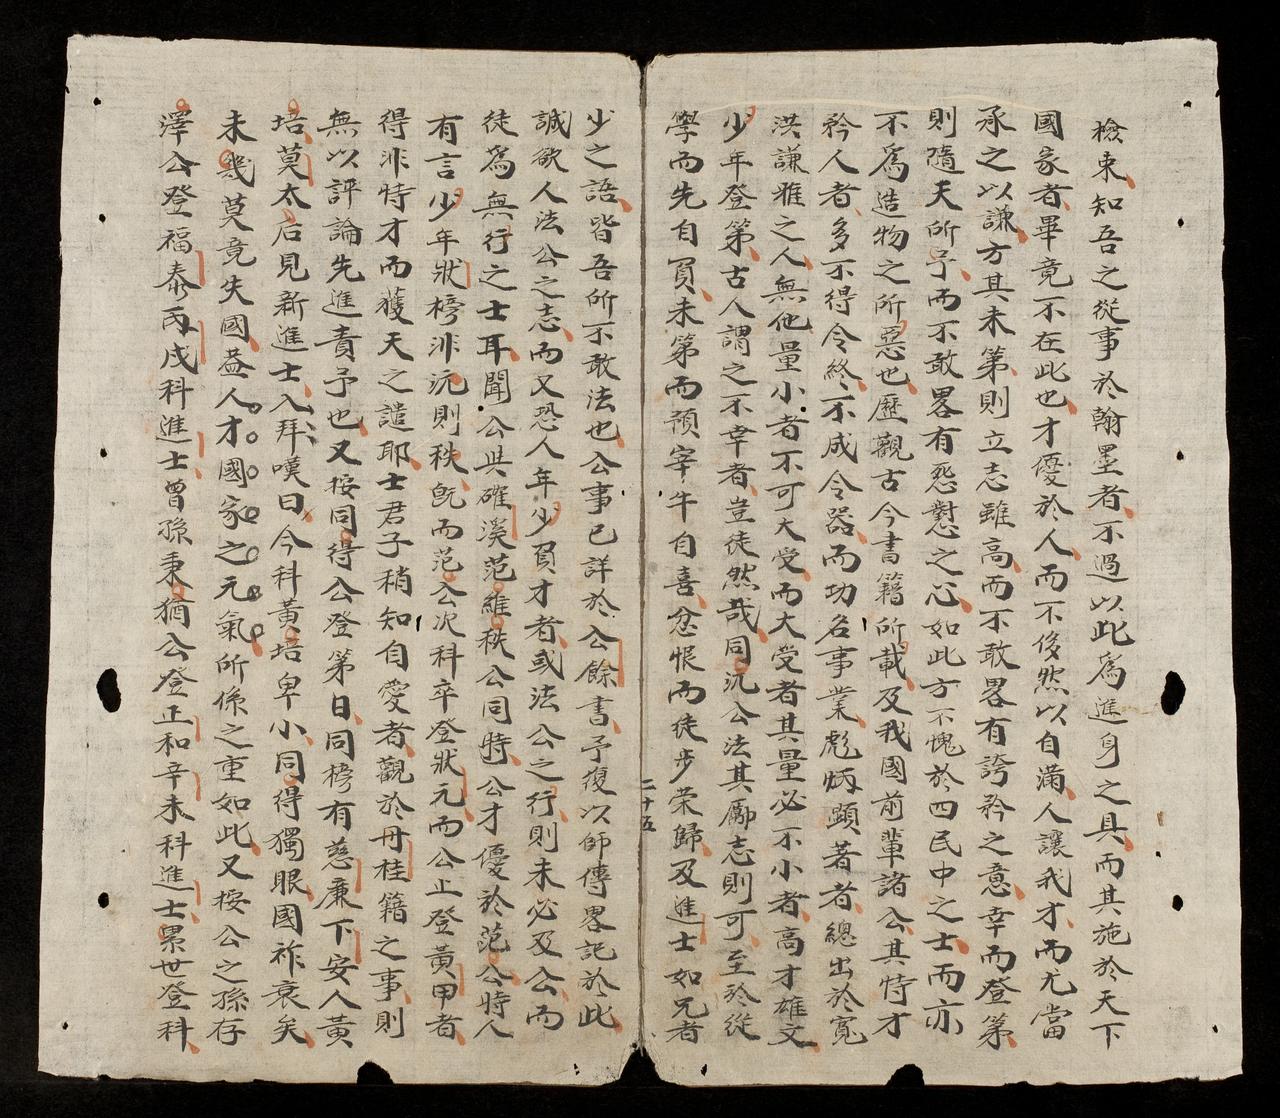 檢束知吾之從事於翰墨者不過以此爲進身之具而其施於天下
國家者畢竟不在此也才優於人而不侈然以自滿人讓我才而尤當
承之以謙方其未第則立志雖高而不敢畧有誇矜之意幸而登第
則隨天所予而不敢畧有怨懟之心如此方不愧於四民中之士而亦
不爲造物之所惡也歷觀古今書籍所載及我國前輩諸公其恃才
矜人者多不得令終不成令器而功名事業彪炳顯著者總出於寬
洪謙雅之人無他量小者不可大受而大受者其量必不小者高才雄文
少年登第古人謂之不幸者豈徒然哉同沉公法其勵志則可至於從
學而先自負未第而預宰牛自喜忿恨而徒步荣歸及進士如兄者
二十五
少之語皆吾所不敢法也公事已詳於公餘書予復以師傳畧記於此
誠欲人法公之志而又恐人年少負才者或法公之行則未必及公而
徒爲無行之士耳聞公與確溪范維秩公同時公才優於范公時人
有言少年狀榜非沅則秩旣而范公次科卒登狀元而公止登黃甲者
得非恃才而獲天之譴耶士君子稍知自愛者觀於丹桂籍之事則
無以評論先進責予也又按同得公登第日同榜有慈廉下安人黃
培莫太后見新進士入拜嘆曰今科黃培卑小同得獨眼國祚衰矣
未幾莫竟失國益人才國家之元氣所係之重如此又按公之孫存
澤公登福泰丙戌科進士曾孫秉猶公登正和辛未科進士累世登科